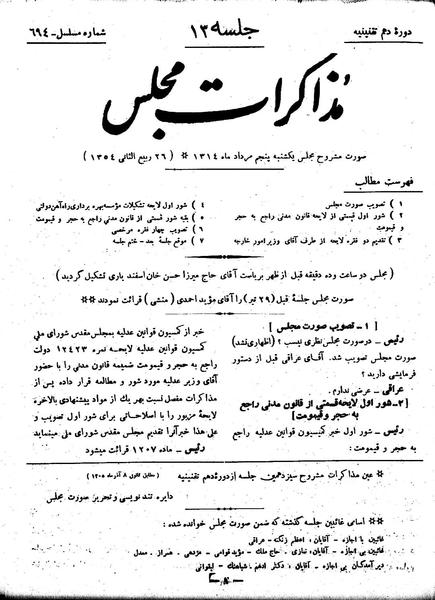 دورهٔ دهم تقنینیه
جلسه ۱۳
شماره مسلسل - ۶۹۴
مذاکرات مجلس
صورت مشروح مجلس یکشنبه پنجم مرداد ماه ۱۳۱۴ * (۲۶ ربیع الثانی ۱۳۵۴)
فهرست مطالب
۱) تصویب صورت مجلس
۲) شور اول قسمتی از لایحه قانون مدنی راجع به حجر و قیمومت
۳) تقدیم دو فقره لایحه از طرف آقای وزیر امور خارجه
۴) شور اول لایحه تشکیلات مؤسسه بهره برداری راه آهن دولتی
۵) بقیه شور قسمتی از قانون مدنی راجع به حجر و قیمومت
۶) تصویب چهار فقره مرخصی
۷) موقع جلسه بعد - ختم جلسه
(مجلس دو ساعت وده دقیقه قبل از ظهر بریاست آقای حاج میرزا حسن خان اسفندیاری تشکیل گردید)
صورت مجلس جلسهٔ قبل (۲۹ تیر) را آقای مؤید احمدی (منشی) قرائت نمودند **
[۱- تصویب صورت مجلس]
رئیس - درصورت مجلس نظری نیست؟ (اظهاری نشد)
صورت مجلس تصویب شد. آقای عراقی قبل از دستور
فرمایشی دارید؟
عراقی - عرضی ندارم.
[۲- شور اول لایحه قسمتی از قانون مدنی راجع
به حجر و قیمومت]
رئیس - شور اول خبر کمیسیون قوانین عدلیه راجع
به حجر و قیمومت:
خبر از کمسیون قوانین عدلیه بمجلس مقدس شورای ملی
کمسیون قوانین عدلیه لایحهٔ نمره ۱۲۴۲۳ دولت
راجع به حجر و قیمومت ضمیمه قانون مدنی را با حضور
آقای وزیر عدلیه مورد شور و مطالعه قرار داده پس از
مذاکرات مفصل نسبت بهر یك از مواد پیشنهادی بالاخره
لایحهٔ مزبور را با اصلاحاتی برای شور اول تصویب و
علی هذا خبر آنرا تقدیم مجلس مقدس شورای ملی مینماید
رئیس - ماده ۱۲۰۷ قرائت میشود
* عین مذاکرات مشروح سیزدهمین جلسه از دورهٔ دهم تقنینیه (مطابق قانون ۸ آذر ماه ۱۳۰۵)
دایره تند نویسی و تحریر صورت مجلس
** اسامی غائبین جلسه گذشته که ضمن صورت مجلس خوانده شده:
غائبین با اجازه - آقایان: اعظم زنگنه - عراقی
غائبین بی اجازه - آقایان: نمازی - حاج ملك - مؤید قوامی - مژدهی - ضرابی - معدل
دیر آمدگان بی اجازه - آقایان: دکتر ادهم - شباهنك - لیقوانی